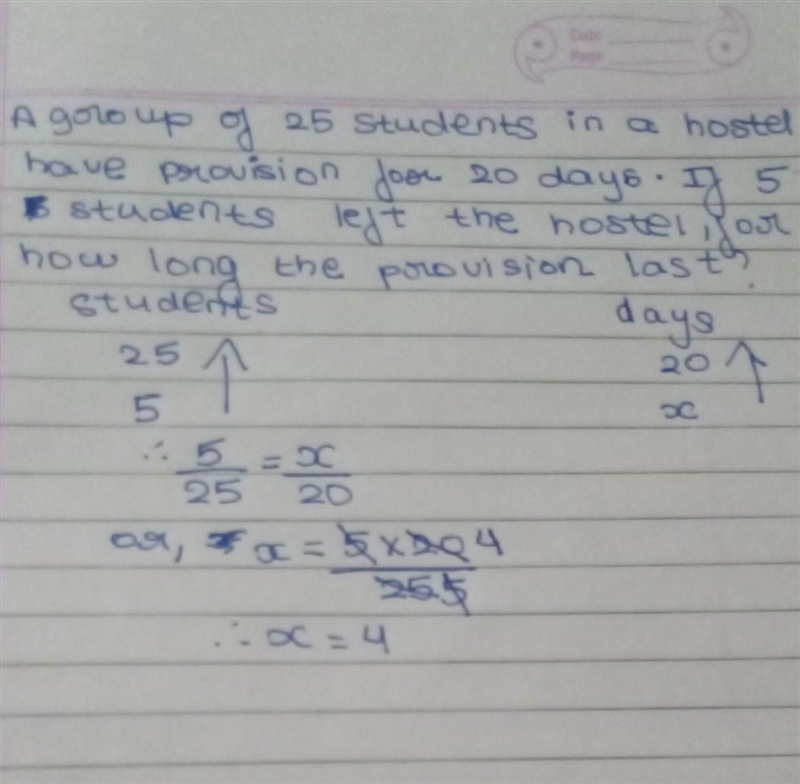 Date
Page
A group of 25 students in a hostel
have provision for 20 days. If 5
students left the hostel, for
how long the provision last?
students days
25 20
5 x
∴ 5/25 = x/20
or, x = 5×20 4 / 25 5
∴ x = 4